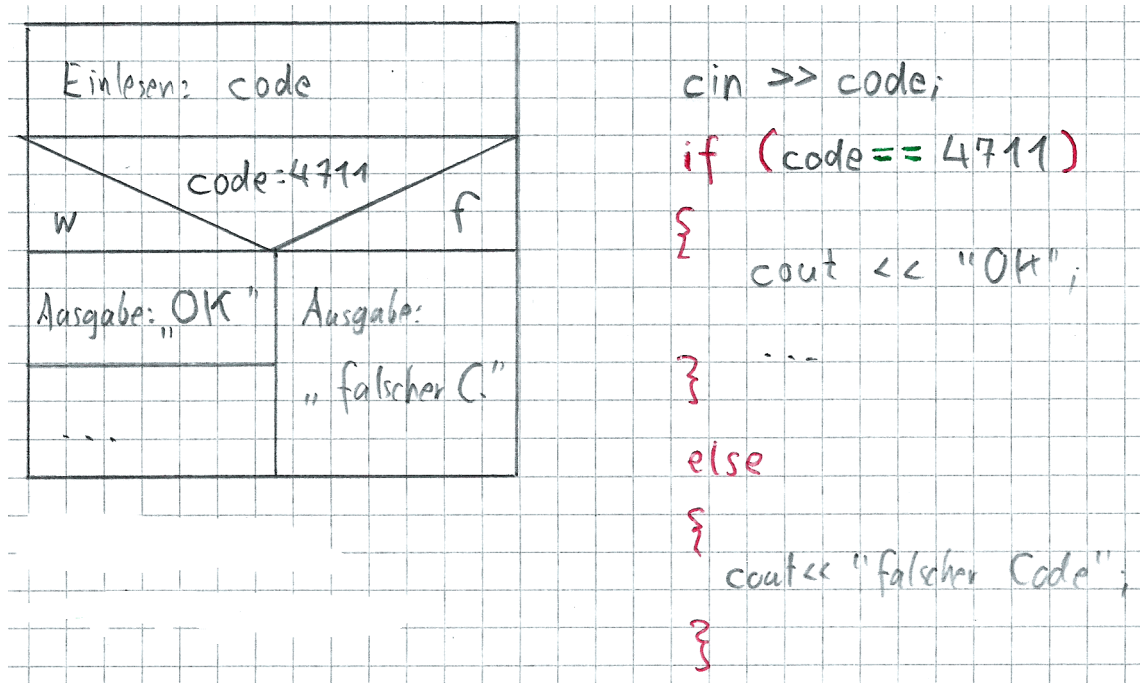 Einlesen: code
code=4711
w
f
Ausgabe: „OK"
Ausgabe:
„falscher C."
...
cin >> code;
if (code == 4711)
{
cout << "OK";
...
}
else
{
cout << "falscher Code";
}